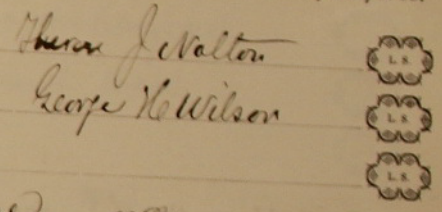 Theron J Nolton L. S.
George H Wilson L. S.
L. S.